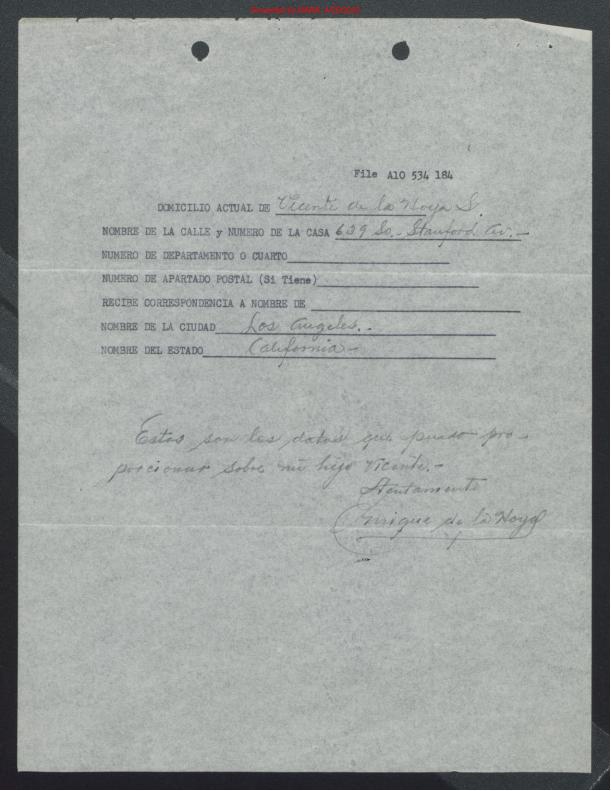 File A10 534 184
DOMICILIO ACTUAL DE Vicente de la Hoya S.
NOMBRE DE LA CALLE y NUMERO DE LA CASA 629 So. Stanford Av.-
NUMERO DE DEPARTAMENTO O CUARTO
NUMERO DE APARTADO POSTAL (Si Tiene)
RECIBE CORRESPONDENCIA A NOMBRE DE
NOMBRE DE LA CIUDAD Los Angeles.-
NOMBRE DEL ESTADO California-
Estos son los datos que puedo pro-
porcionar sobre mi hijo Vicente.-
Atentamente
Enrique de la Hoya